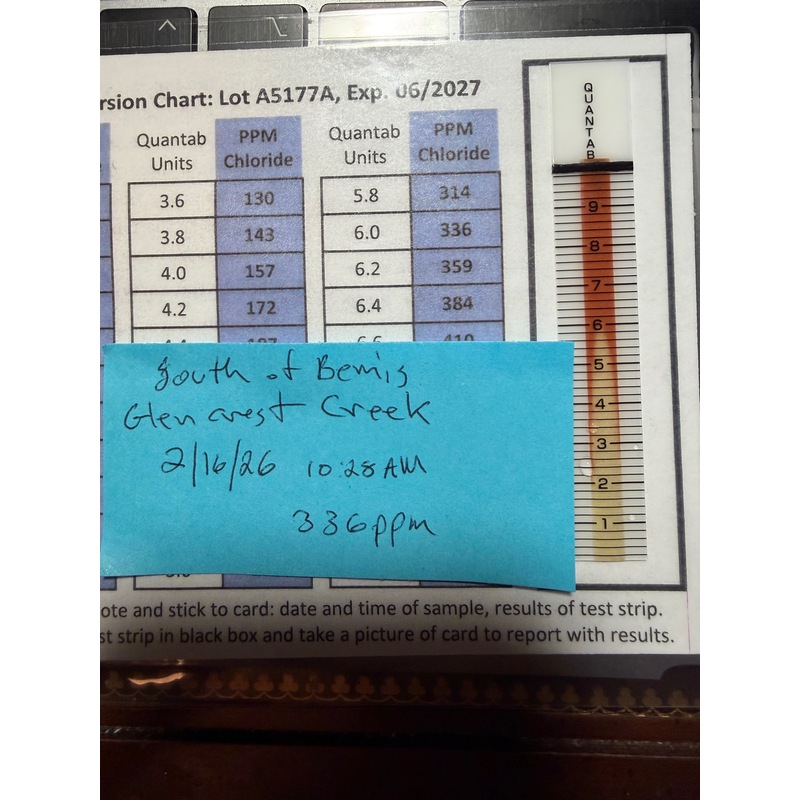 rsion Chart: Lot A5177A, Exp. 06/2027
Quantab Units PPM Chloride Quantab Units PPM Chloride
3.6 130 5.8 314
3.8 143 6.0 336
4.0 157 6.2 359
4.2 172 6.4 384
South of Bemis
Glen crest Creek
2/16/26 10:28 AM
336ppm
ote and stick to card: date and time of sample, results of test strip.
st strip in black box and take a picture of card to report with results.
QUANTAB
9
8
7
6
5
4
3
2
1